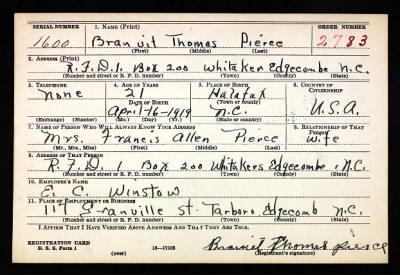 SERIAL NUMBER 1. NAME (Print) ORDER NUMBER
1600 Branvil Thomas Pierce 2783
(First) (Middle) (Last)
2. ADDRESS (Print)
R.F.D.1 Box 200 Whitaker Edgecombe N.C.
(Number and street or R. F. D. number) (Town) (County) (State)
3. TELEPHONE 4. AGE IN YEARS 5. PLACE OF BIRTH 6. COUNTRY OF CITIZENSHIP
None 21 Halafax
DATE OF BIRTH (Town or county)
April-16-1919 N.C. U.S.A.
(Exchange) (Number) (Mo.) (Day) (Yr.) (State or country)
7. NAME OF PERSON WHO WILL ALWAYS KNOW YOUR ADDRESS 8. RELATIONSHIP OF THAT PERSON
Mrs. Francis Allen Pierce Wife
(Mr., Mrs., Miss) (First) (Middle) (Last)
9. ADDRESS OF THAT PERSON
R.F.D.1 Box 200 Whitakers Edgecombe, N.C.
(Number and street or R. F. D. number) (Town) (County) (State)
10. EMPLOYER'S NAME
E. C. Winstow
11. PLACE OF EMPLOYMENT OR BUSINESS
117 Granville St. Tarboro Edgecomb N.C.
(Number and street or R. F. D. number) (Town) (County) (State)
I AFFIRM THAT I HAVE VERIFIED ABOVE ANSWERS AND THAT THEY ARE TRUE.
REGISTRATION CARD
D. S. S. Form 1 (over) 16-17105 Branvil Thomas Pierce
(Registrant's signature)